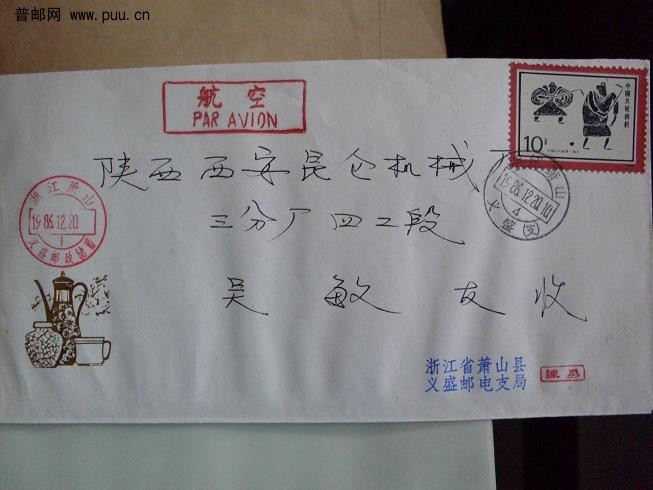 普邮网 www.puu.cn
航空
PAR AVION
中国古代体育
10分
陕西西安昆仑机械厂
三分厂四工段
吴敏友收
浙江萧山
1986.12.20.
1
义盛邮政储蓄
萧山
1986.12.20.10
4
义盛(支)
浙江省萧山县
义盛邮电支局
陈勇